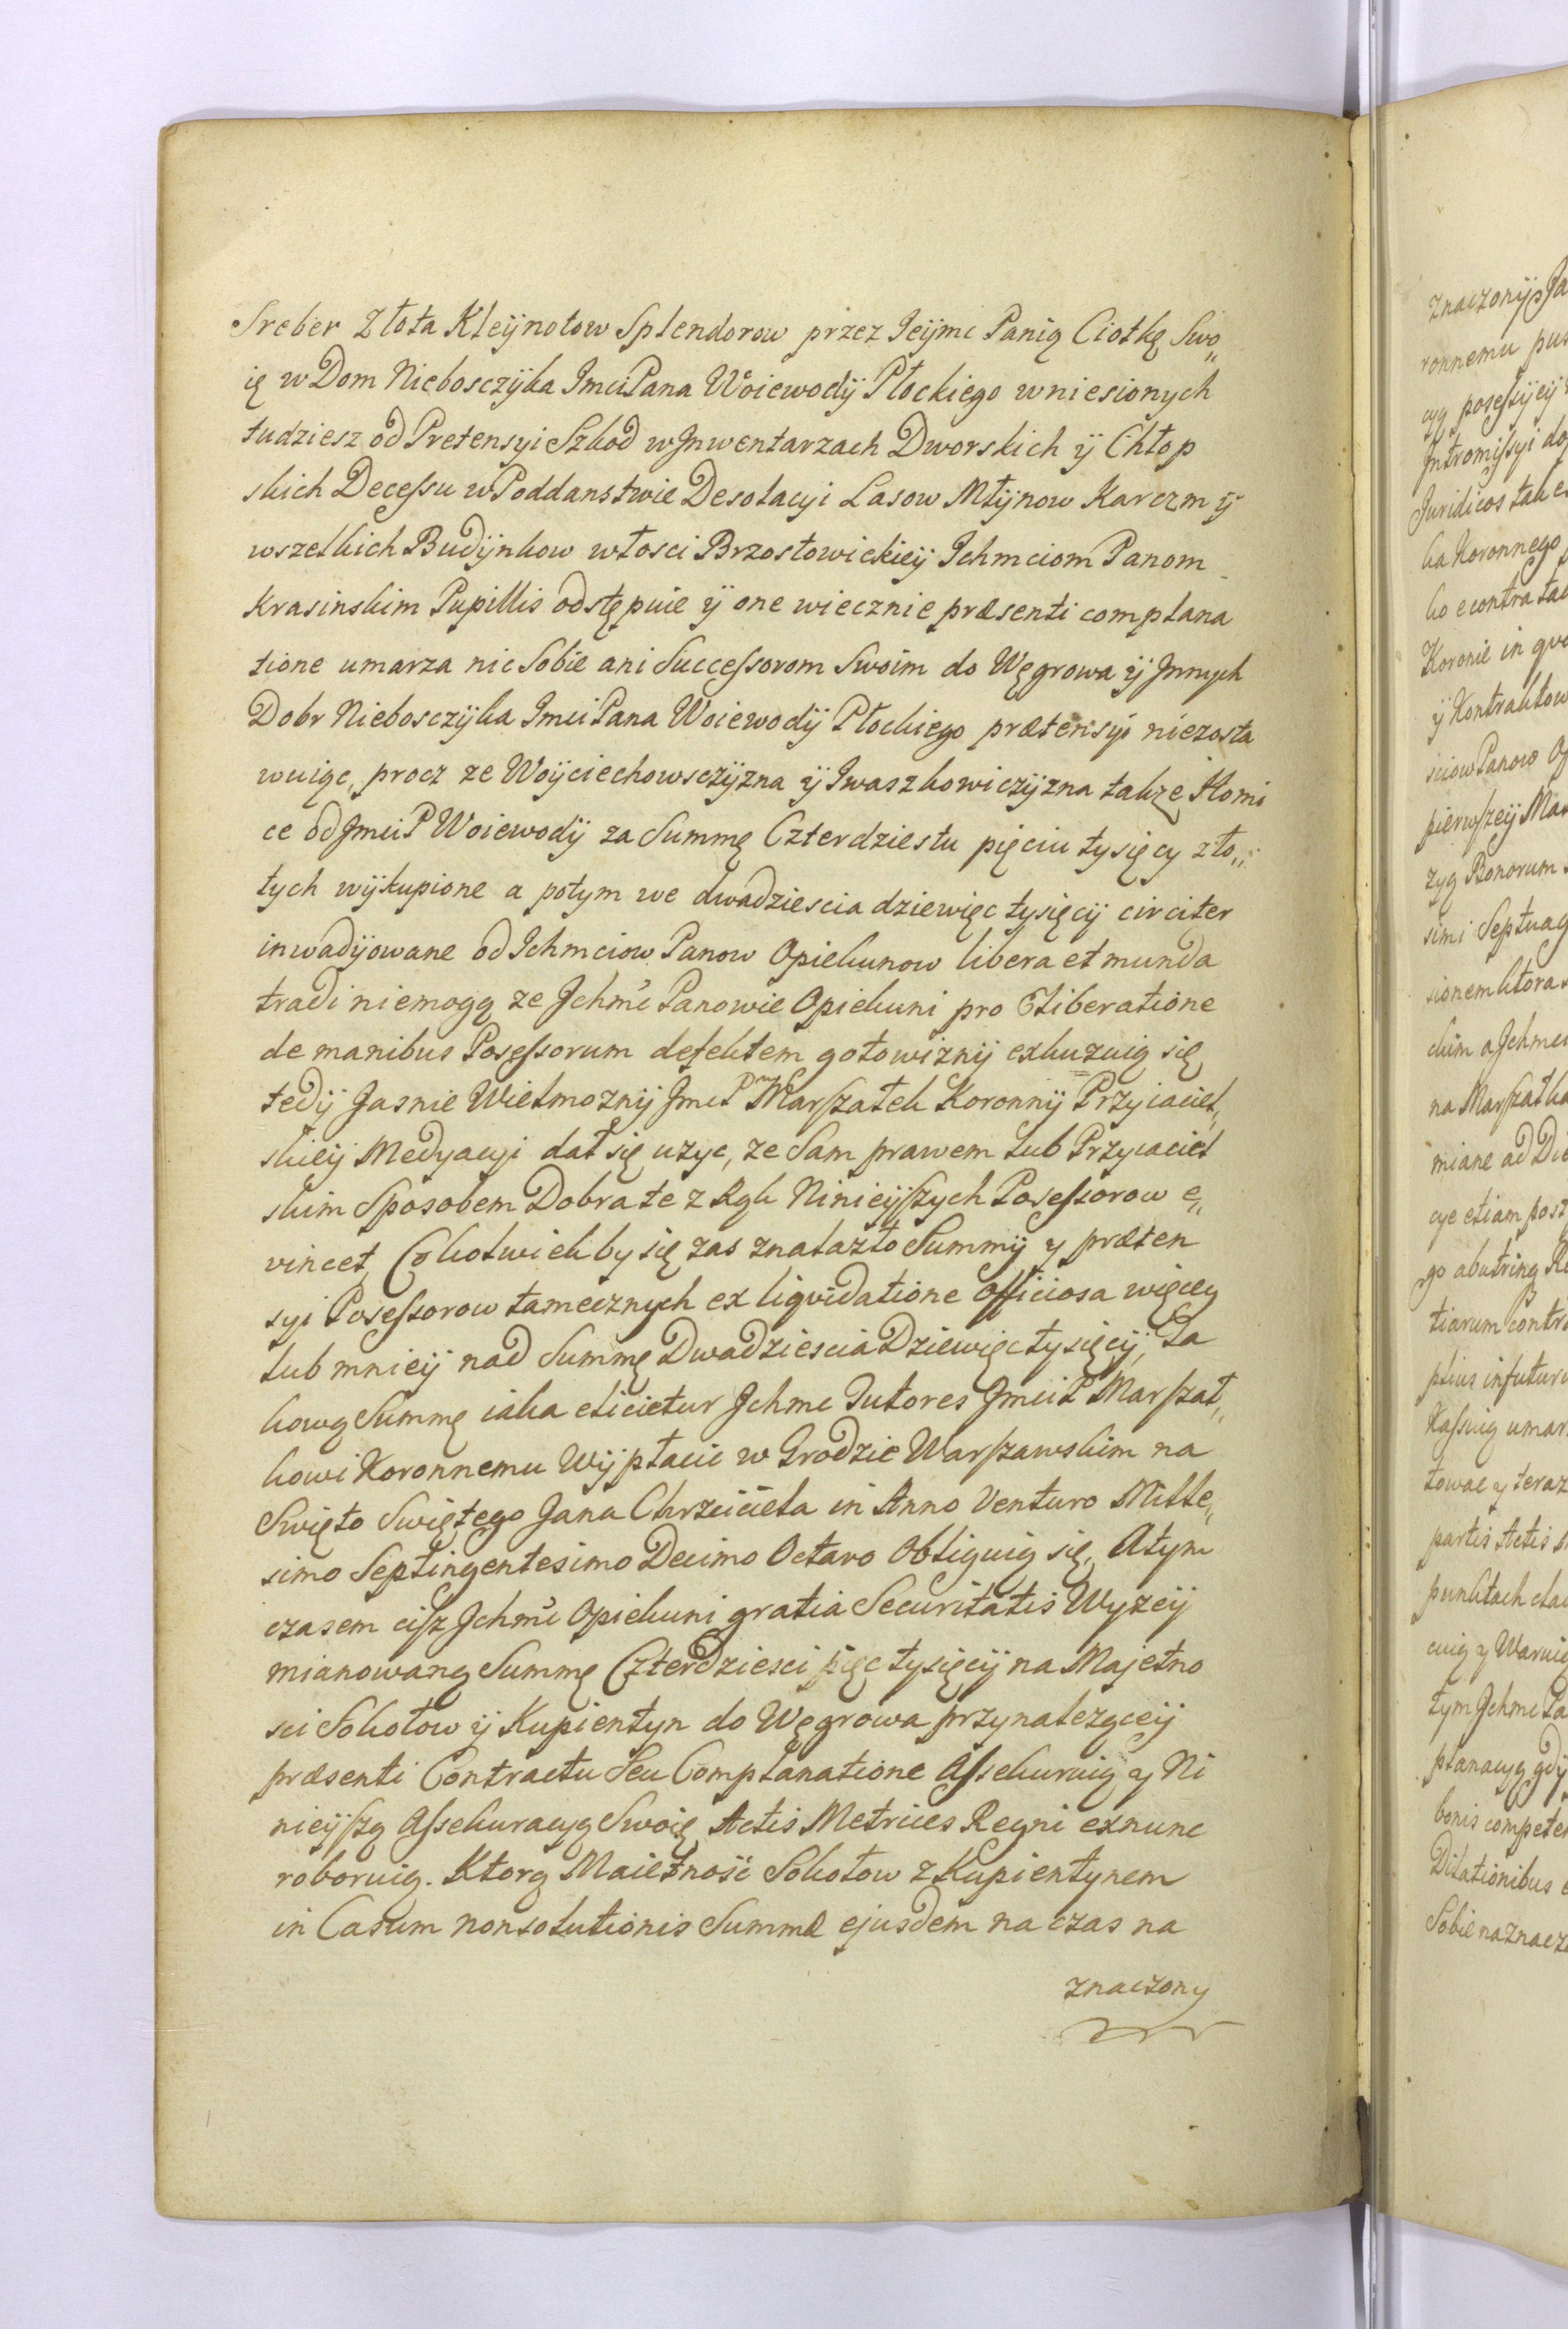 Sreber Złota Kleÿnotow Splendorow przez Jeÿmc Panią Ciotkę Swo„
ię w Dom Niebosczÿka Jmci Pana Woiewodÿ Płockiego wniesionych
tudziesz od Pretensyi Szkod w Jnwentarzach Dworskich ÿ Chłop
skich Decessu w Poddanstwie Desolacyi Lasow Młÿnow Karczm ÿ
wszelkich Budÿnkow włosci Brzostowickieÿ Jchmciom Panom
Krasinskim Pupillis odstępuie ÿ one wiecznie præsenti complana
tione umarza nic Sobie ani Successorom Swoim do Węgrowa ÿ Jnnych
Dobr Niebosczÿka Jmci Pana Woiewodÿ Płockiego prætensyi niezosta
wuiąc, procz ze Woÿciechowsczÿzna ÿ Jwaszkowiczÿzna takze
ce od Jmci P Woiewodÿ za Summę Czterdziestu pięciu tysięcy zło„
tych wÿkupione a potym we dwadziescia dziewięc tysięcÿ circiter
inwadÿowane od Jchmciow Panow Opiekunow libera et munda
tradi niemogą ze Jchmc Panowie Opiekuni pro Eliberatione
de manibus Possessorum defektem gotowiznÿ exkuzuią się
tedÿ Jasnie Wielmoznÿ Jmc P Marszałek Koronnÿ Przyiaciel„
skieÿ Medyacyi dał się uzyc, ze Sam prawem lub Przyiaciel
skim Sposobem Dobra te z Rąk Ninieÿszych Posessorow e„
vincet, Cokolwiek by się zas znalazło Summÿ y præten
syi Posessorow tamecznych ex liqvidatione officiosa więcey
lub mnieÿ nad Summę Dwadziescia Dziewięc tysięcÿ, Ta
kową Summę iaka elicietur Jchmc Tutores Jmci P Marszał„
kowi Koronnemu Wÿpłacic w Grodzie Warszawskim na
Swięto Swiętego Jana Chrzciciela in Anno Venturo Mille„
simo Septingentesimo Decimo Octavo Obliguią się, A tym
czasem cisz Jchmc Opiekuni gratia Securitatis Wyzeÿ
mianowaną Summę Czterdziesci pięc tysięcÿ na Majetno
sci Sokołow ÿ Kupientyn do Węgrowa przynalezącеÿ
præsenti Contractu Seu Complanatione Assekuruią y Ni
nieÿszą Assekuracyą Swoię Actis Metrices Regni exnunc
roboruią. Ktorą Maietność Sokołow z Kupientynem
in Casum nonsolutionis Summæ ejusdem na czas na
znaczony